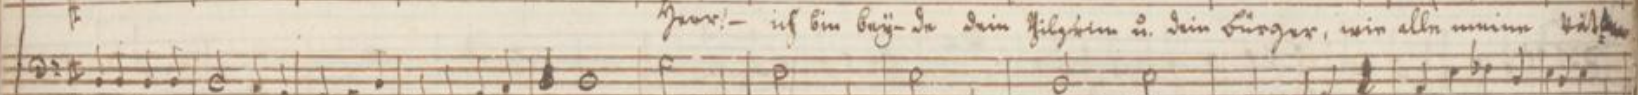 Herr! – ich bin bey-de dein Pilgrim u. dein Bürger, wie alle meine Väter